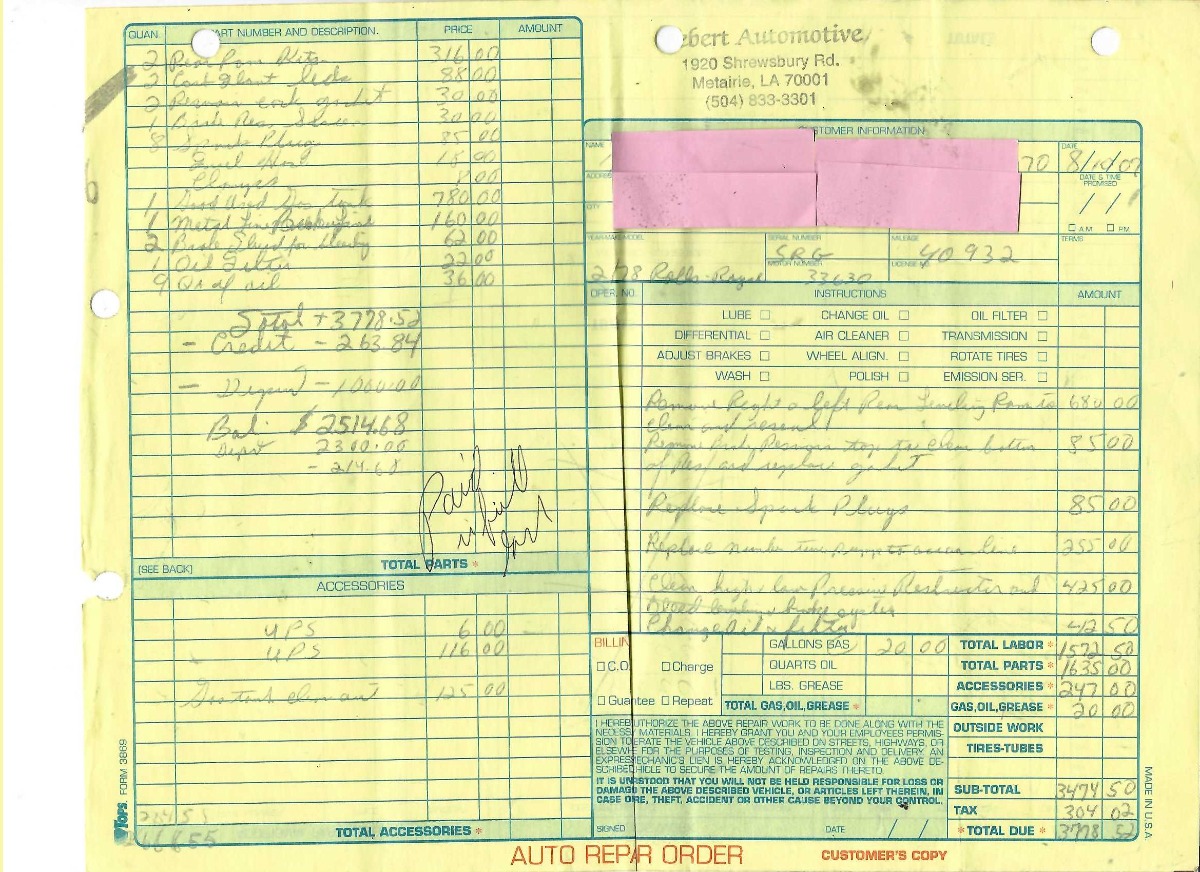 QUAN. PART NUMBER AND DESCRIPTION. PRICE AMOUNT
2 Rear Ram Kits 316 00
2 88 00
2 30 00
1 30 00
8 Spark Plugs 85 00
Fuel Hose 18 00
Clamps 8.00
1 Good Used Gas tank 780 00
1 Metal Line 160 00
2 Brake Fluid for bleeding 62 00
1 Oil Filter 22 00
9 Qt of oil 36 00
Total + 3778.52
- Credit - 263.84
- - 1000.00
Bal. $ 2514.68
2300.00
- 214.68
Paid in full
(SEE BACK) TOTAL PARTS *
ACCESSORIES
UPS 6 00
UPS 116 00
Gas tank 125 00
TOTAL ACCESSORIES *
TOPS FORM 3869
ebert Automotive
1920 Shrewsbury Rd.
Metairie, LA 70001
(504) 833-3301
CUSTOMER INFORMATION
NAME 70 DATE 8/10/07
ADDRESS DATE & TIME PROMISED
CITY / /
☐ A.M. ☐ P.M.
YEAR-MAKE-MODEL SERIAL NUMBER MILEAGE TERMS
SRG 40932
MOTOR NUMBER LICENSE NO.
78 Rolls-Royce 33630
OPER. NO. INSTRUCTIONS AMOUNT
LUBE ☐ CHANGE OIL ☐ OIL FILTER ☐
DIFFERENTIAL ☐ AIR CLEANER ☐ TRANSMISSION ☐
ADJUST BRAKES ☐ WHEEL ALIGN. ☐ ROTATE TIRES ☐
WASH ☐ POLISH ☐ EMISSION SER. ☐
Remove Right & Left Rear Leveling Rams to 680 00
clean and reseal
Remove top to clean bottom 85 00
of Res and replace gasket
Replace Spark Plugs 85 00
Replace 255 00
Clean high low Pressure and 425 00
Change Oil & filter 42 50
BILLIN GALLONS GAS 20 00 TOTAL LABOR * 1572 50
☐ C.O. ☐ Charge QUARTS OIL TOTAL PARTS * 1635 00
LBS. GREASE ACCESSORIES * 247 00
☐ Guarantee ☐ Repeat TOTAL GAS, OIL, GREASE * GAS, OIL, GREASE * 20 00
I HEREB UTHORIZE THE ABOVE REPAIR WORK TO BE DONE ALONG WITH THE
NECESS MATERIALS. I HEREBY GRANT YOU AND YOUR EMPLOYEES PERMIS-
SION TO ERATE THE VEHICLE ABOVE DESCRIBED ON STREETS, HIGHWAYS, OR
ELSEWH FOR THE PURPOSES OF TESTING, INSPECTION AND DELIVERY. AN
EXPRES ECHANIC'S LIEN IS HEREBY ACKNOWLEDGED ON THE ABOVE DE-
SCRIBE HICLE TO SECURE THE AMOUNT OF REPAIRS THERETO.
IT IS UN STOOD THAT YOU WILL NOT BE HELD RESPONSIBLE FOR LOSS OR
DAMAG THE ABOVE DESCRIBED VEHICLE, OR ARTICLES LEFT THEREIN, IN
CASE O RE, THEFT, ACCIDENT OR OTHER CAUSE BEYOND YOUR CONTROL.
OUTSIDE WORK
TIRES-TUBES
SUB-TOTAL 3474 50
TAX 304 02
SIGNED DATE / / * TOTAL DUE * 3778 52
MADE IN U.S.A.
AUTO REPAIR ORDER CUSTOMER'S COPY